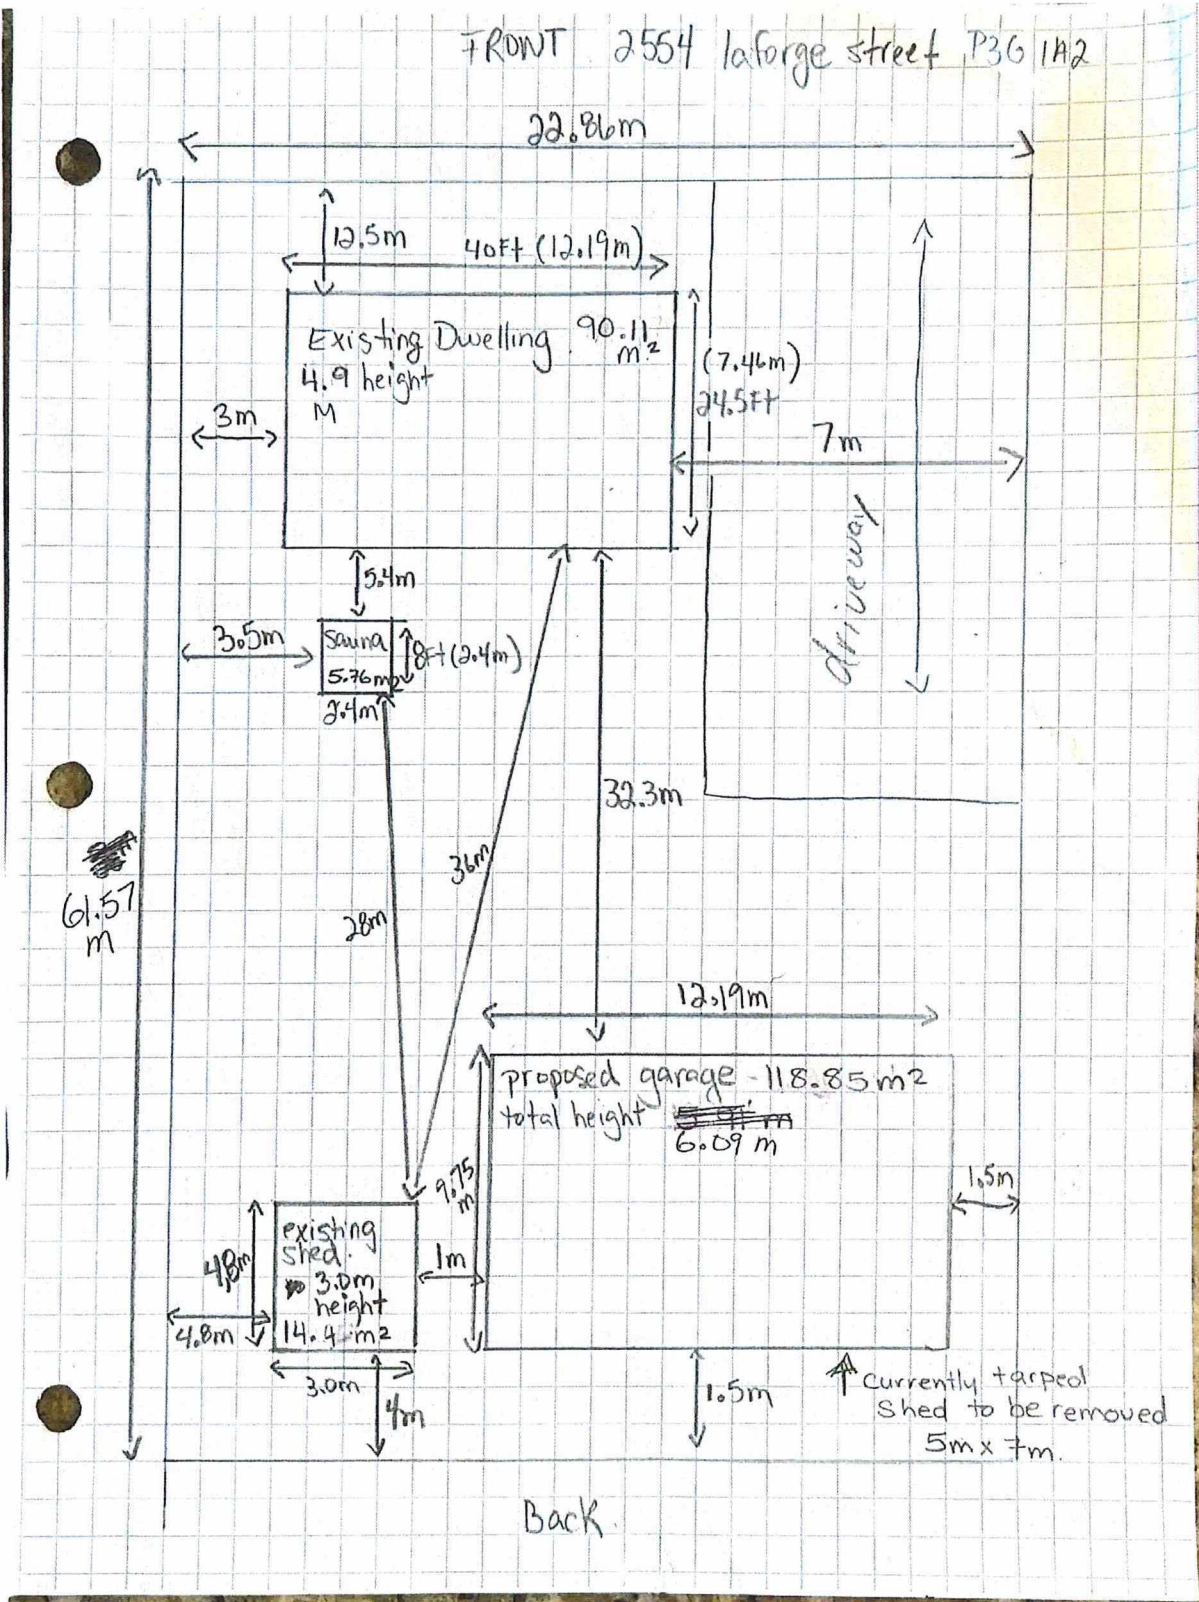 FRONT 2554 laforge street P3G 1A2
22.86m
12.5m
40Ft (12.19m)
Existing Dwelling 90.11 m²
4.9 height
M
(7.46m)
24.5Ft
3m
7m
driveway
5.4m
3.5m
Sauna
5.76m2
8Ft (2.4m)
2.4m
32.3m
36m
28m
61.57
m
12.19m
proposed garage - 118.85 m²
total height
6.09 m
9.75
m
1.5m
existing
shed.
3.0m
height
14.4 m2
4.8m
4.8m
1m
3.0m
4m
1.5m
currently tarped
shed to be removed
5m x 7m.
Back.